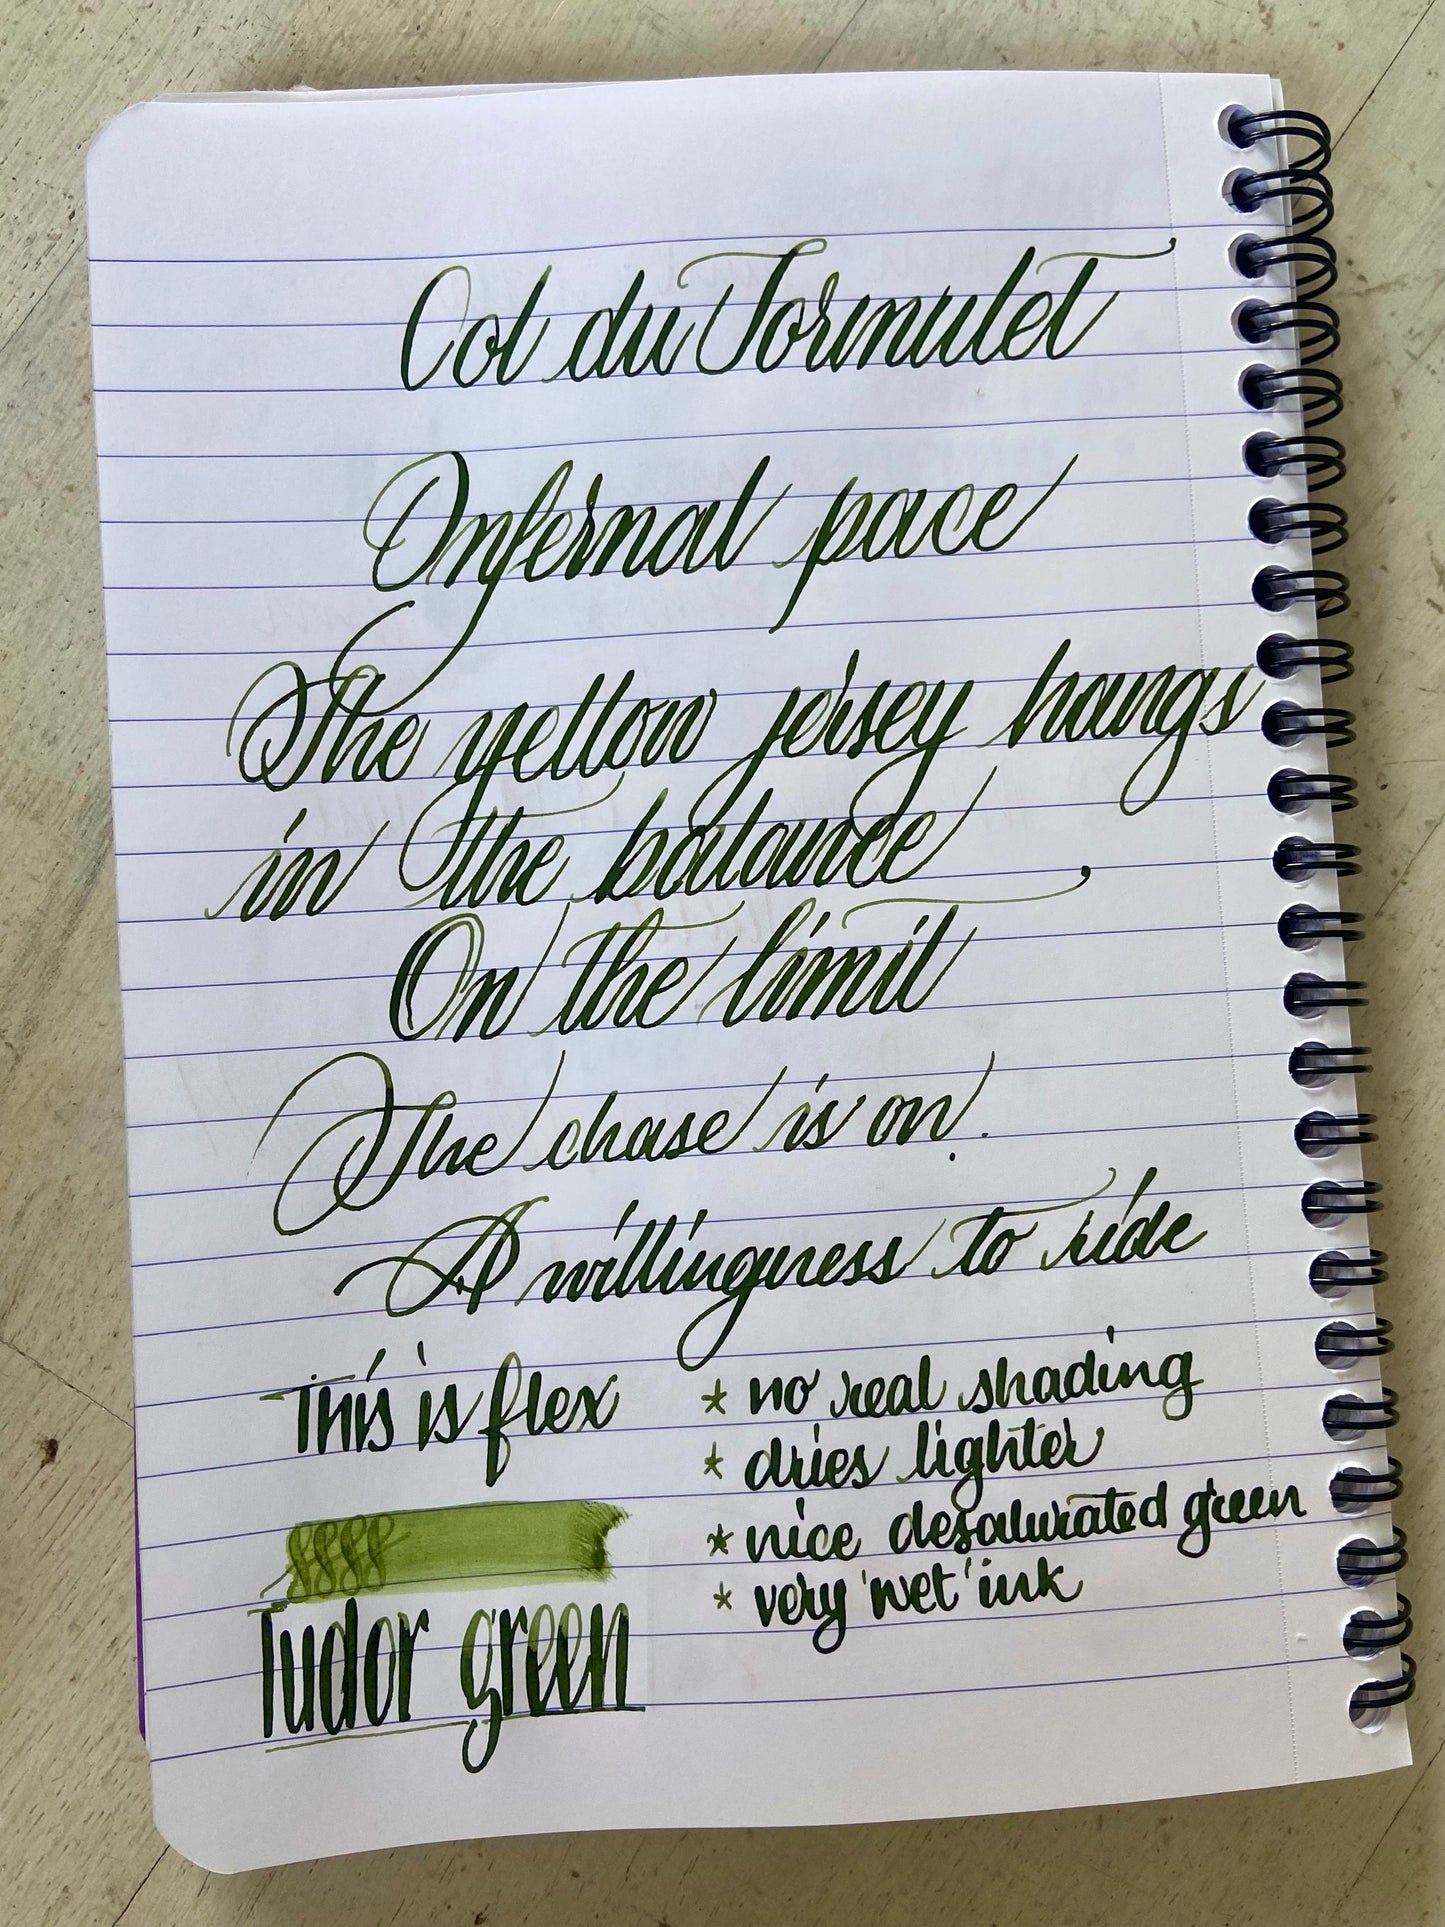 Col du Tormulet
Infernal pace
The yellow jersey hangs
in the balance
On the limit
The chase is on.
A willingness to ride
This is flex
* no real shading
* dries lighter
* nice desaturated green
* very 'wet' ink
Tudor green